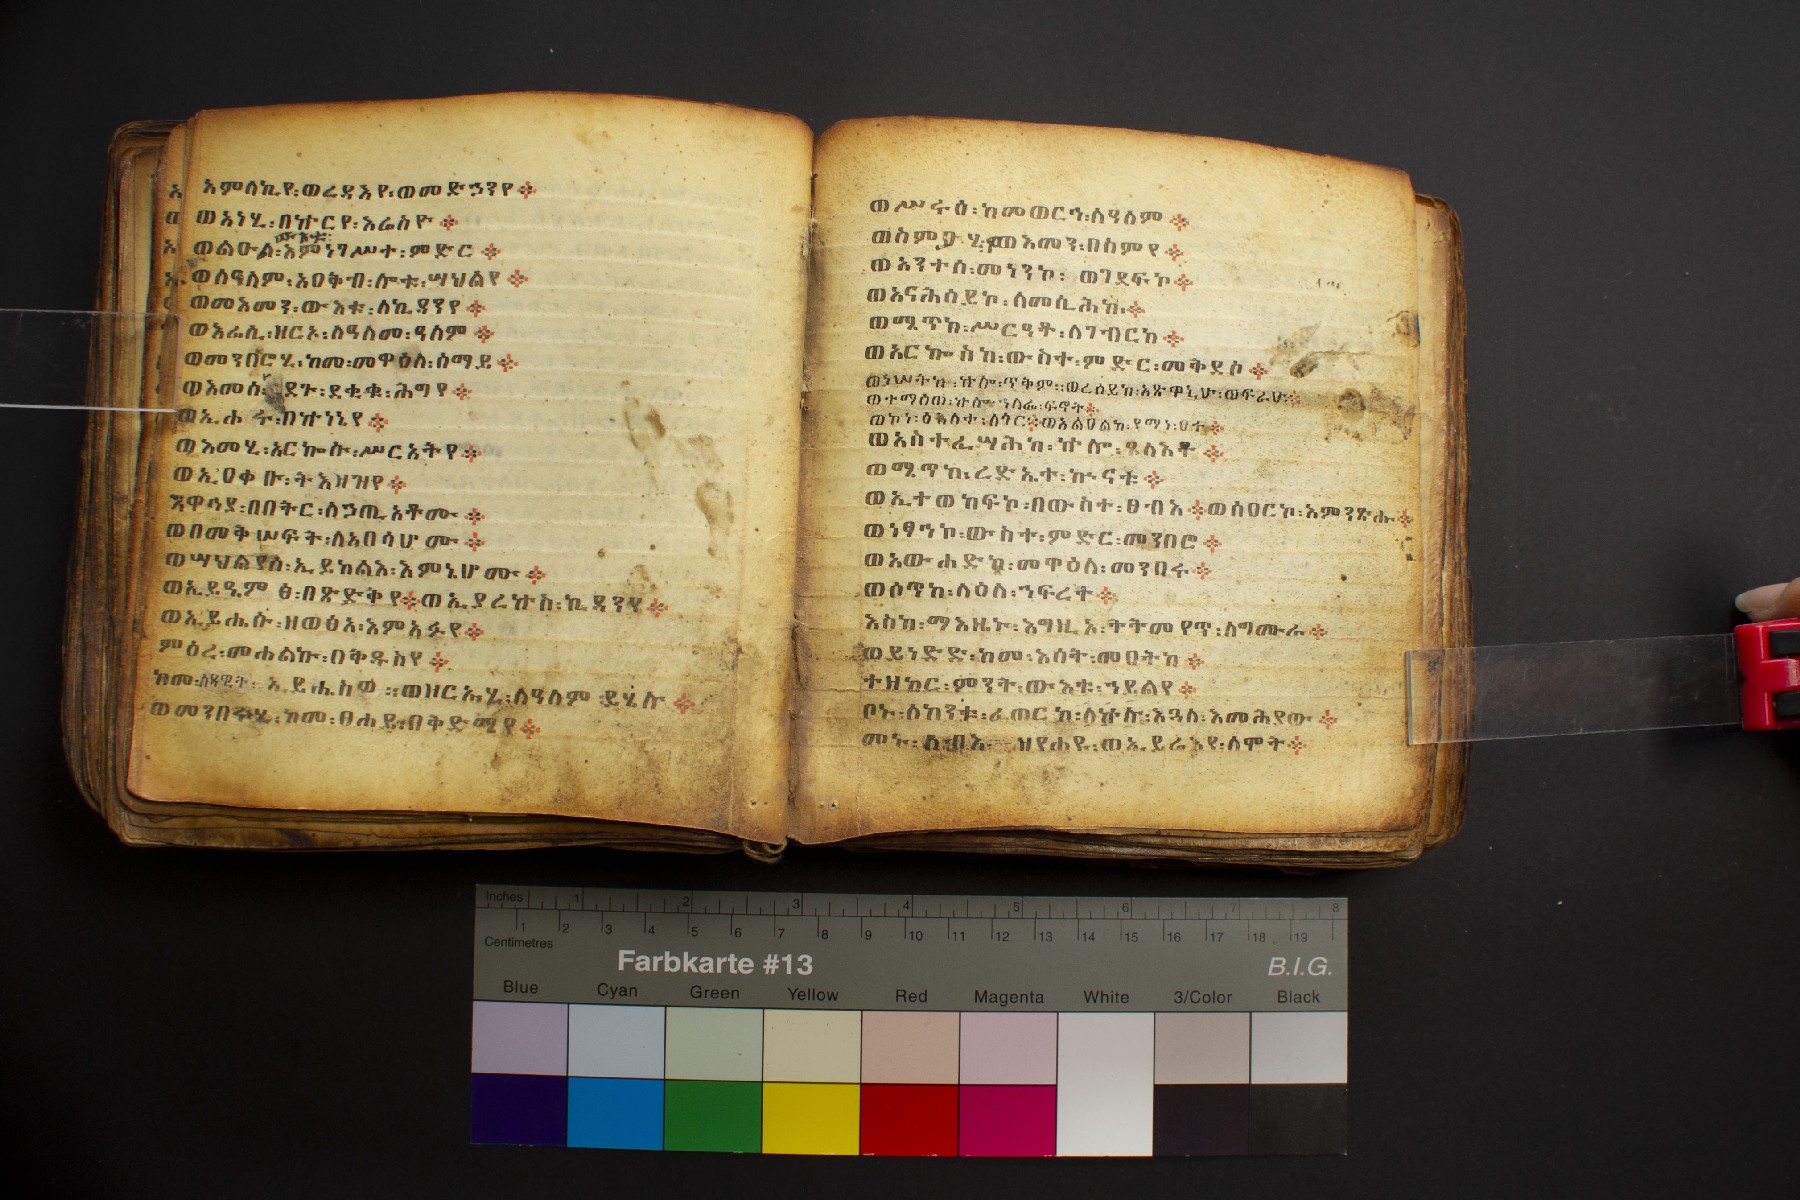 አምላኪየ፡ወረዳእየ፡ወመድኃንየ፨
ወአነሂ፡በኵርየ፡እሬስዮ፨
ውእቱ፡
ወልዑል፡እምነገሥተ፡ምድር፨
ወለዓለም፡አዐቅብ፡ሎቱ፡ሣህልየ፨
ወመእመን፡ውእቱ፡ለኪዳንየ፨
ወእሬሲ፡ዘርኦ፡ለዓለመ፡ዓለም፨
ወመንበሮሂ፡ከመ፡መዋዕለ፡ሰማይ፨
ወእመሰ፡ደጉ፡ደቂቁ፡ሕግየ፨
ወኢሐሩ፡በኵነኔየ፨
ወእመሂ፡አርኰሱ፡ሥርዐትየ፨
ወኢዐቀቡ፡ትእዛዝየ፨
እዋኅደ፡በበትር፡ለኃጢአቶሙ፨
ወበመቅሠፍት፡ለአበሳሆሙ፨
ወሣህልየሰ፡ኢይከልእ፡እምኔሆሙ፨
ወኢይዔምፅ፡በጽድቅየ፨ወኢያረኵስ፡ኪዳንየ፨
ወኢይሔሱ፡ዘወፅአ፡እምአፉየ፨
ምዕረ፡መሐልኩ፡በቅዱስየ፨
ከመ፡ለዳዊት፡ኢይሔስዎ፡፡ወዘርኡሂ፡ለዓለም፡ይሄሉ፨
ወመንበሩሂ፡ከመ፡ፀሐይ፡በቅድሜየ፨
ወሥሩዕ፡ከመ፡ወርኅ፡ለዓለም፨
ወስምዑሂ፡ምእመን፡በሰማይ፨
ወአንተሰ፡መነንኮ፡ወገደፍኮ፨
ወአናሕሰይኮ፡ለመሲሕከ፨
ወሚጥከ፡ሥርዓቶ፡ለገብርከ፨
ወአርኰስከ፡ውስተ፡ምድር፡መቅደሶ፨
ወነሠትከ፡ኵሎ፡ጥቅም፡፡ወረሰይከ፡አጽዋኒሁ፡ወፍራሁ፨
ወተማሰጦ፡ኵሉ፡ኀላፌ፡ፍኖት፨
ወኮነ፡ፅእለተ፡ለጎር፨ወአልዐልከ፡የማነ፡ፀሩ፨
ወአስተፌሣሕከ፡ኵሎ፡ጸላእቶ፨
ወሚጥከ፡ረድኤተ፡ኵናቱ፨
ወኢተወከፍኮ፡በውስተ፡ፀብእ፨ወሰዐርኮ፡እምንጽሑ፨
ወነፃኅኮ፡ውስተ፡ምድር፡መንበሮ፨
ወአውሐድከ፡መዋዕለ፡መንበሩ፨
ወሶጥከ፡ላዕለ፡ኀፍረት፨
እስከ፡ማእዜኑ፡እግዚኦ፡ትትመየጥ፡ለግሙራ፨
ወይነድድ፡ከመ፡እሳት፡መዐትከ፨
ተዘከር፡ምንት፡ውእቱ፡ኀይልየ፨
ቦኑ፡ለከንቱ፡ፈጠርከ፡ለኵሉ፡እጓለ፡እመሕያው፨
መኑ፡ሰብእ፡ዘየሐዩ፡ወኢይሬእዮ፡ለሞት፨
Inches 1 2 3 4 5 6 7 8
Centimetres 1 2 3 4 5 6 7 8 9 10 11 12 13 14 15 16 17 18 19
Farbkarte #13 B.I.G.
Blue Cyan Green Yellow Red Magenta White 3/Color Black